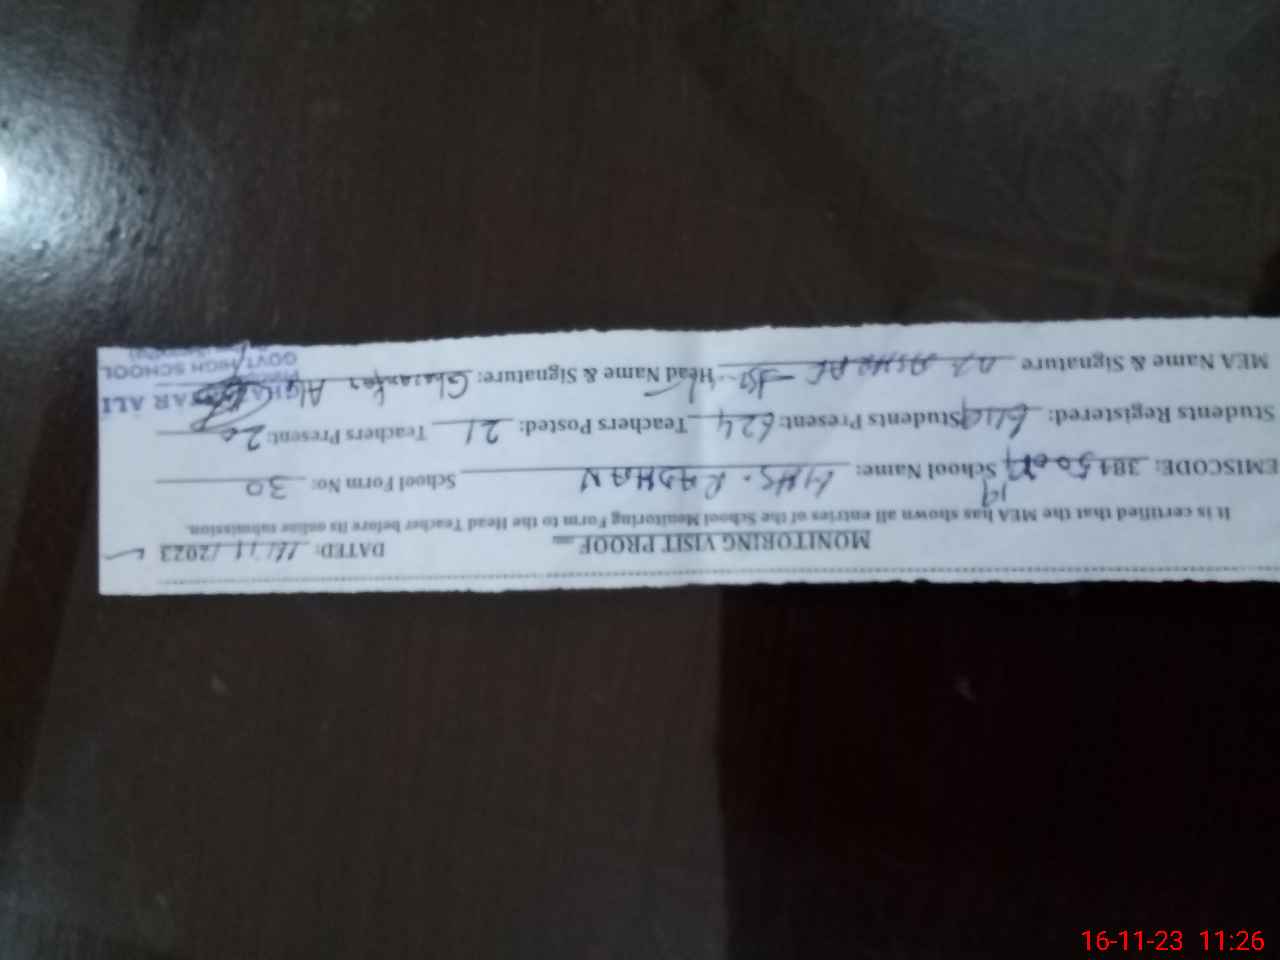 MONITORING VISIT PROOF DATED: 16/11/2023
It is certified that the MEA has shown all entries of the School Monitoring Form to the Head Teacher before its online submission.
EMISCODE: 384500 19 School Name: GHS. RADHAN School Form No: 30
Students Registered: Students Present: 624 Teachers Posted: 21 Teachers Present: 20
MEA Name & Signature ASHRAF Head Name & Signature: Ghazanfar Ali
AR ALI
GOVT. HIGH SCHOOL
16-11-23 11:26